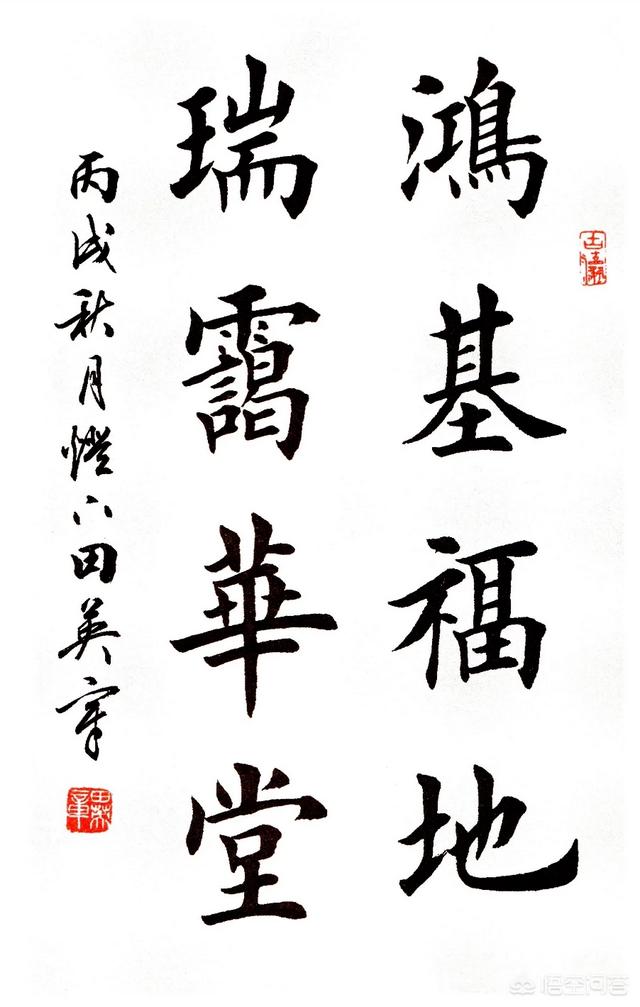 鴻基福地
瑞靄華堂
丙戌秋月燈下田英章
田英章
悟空问答